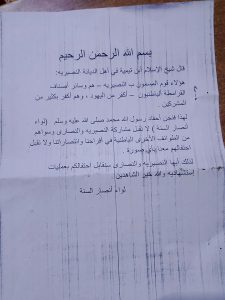 بسم الله الرحمن الرحيم
قال شيخ الاسلام ابن تيمية في أهل الديانة النصيرية:
هؤلاء القوم المسمون ب النصيرية – هم وسائر أصناف
القرامطة الباطنيون – أكفر من اليهود ، وهم أكفر بكثير من
المشركين .
لهذا فنحن أحفاد رسول الله محمد صلى الله عليه وسلم (لواء
أنصار السنة ) لا نقبل مشاركة النصيرية والنصارى وسواهم
من الطوائف الأخرى الباطنية في أفراحنا وانتصاراتنا ولا نقبل
احتفالهم معنا بأي صورة .
لذلك أيها النصيرية والنصارى سنقابل احتفالكم بعمليات
إستشهادية والله خير الشاهدين.
لواء أنصار السنة